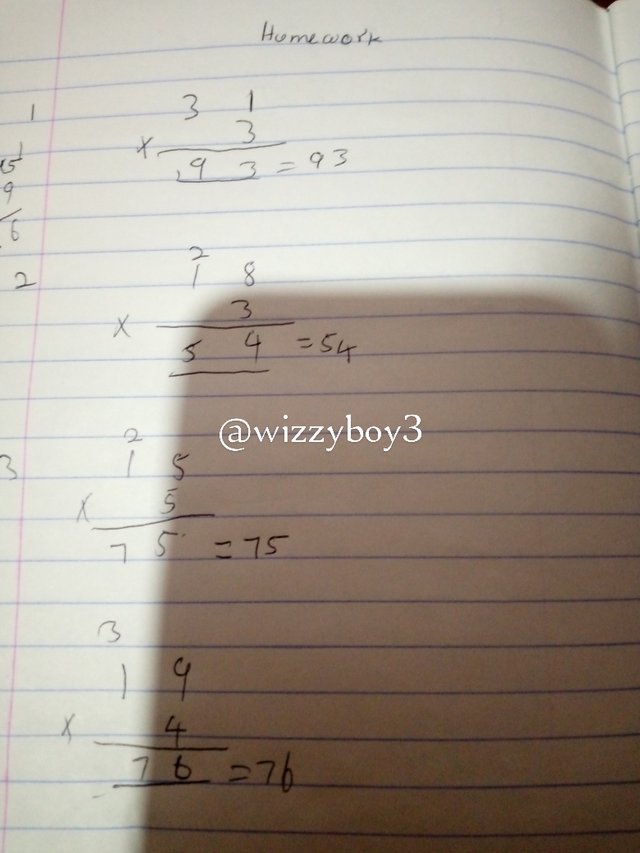 Homework
1
3 1
1
× 3
5
9 3 = 93
9
6
2
2
1 8
× 3
5 4 = 54
@wizzyboy3
2
3
1 5
× 5
7 5 = 75
3
1 9
× 4
7 6 = 76